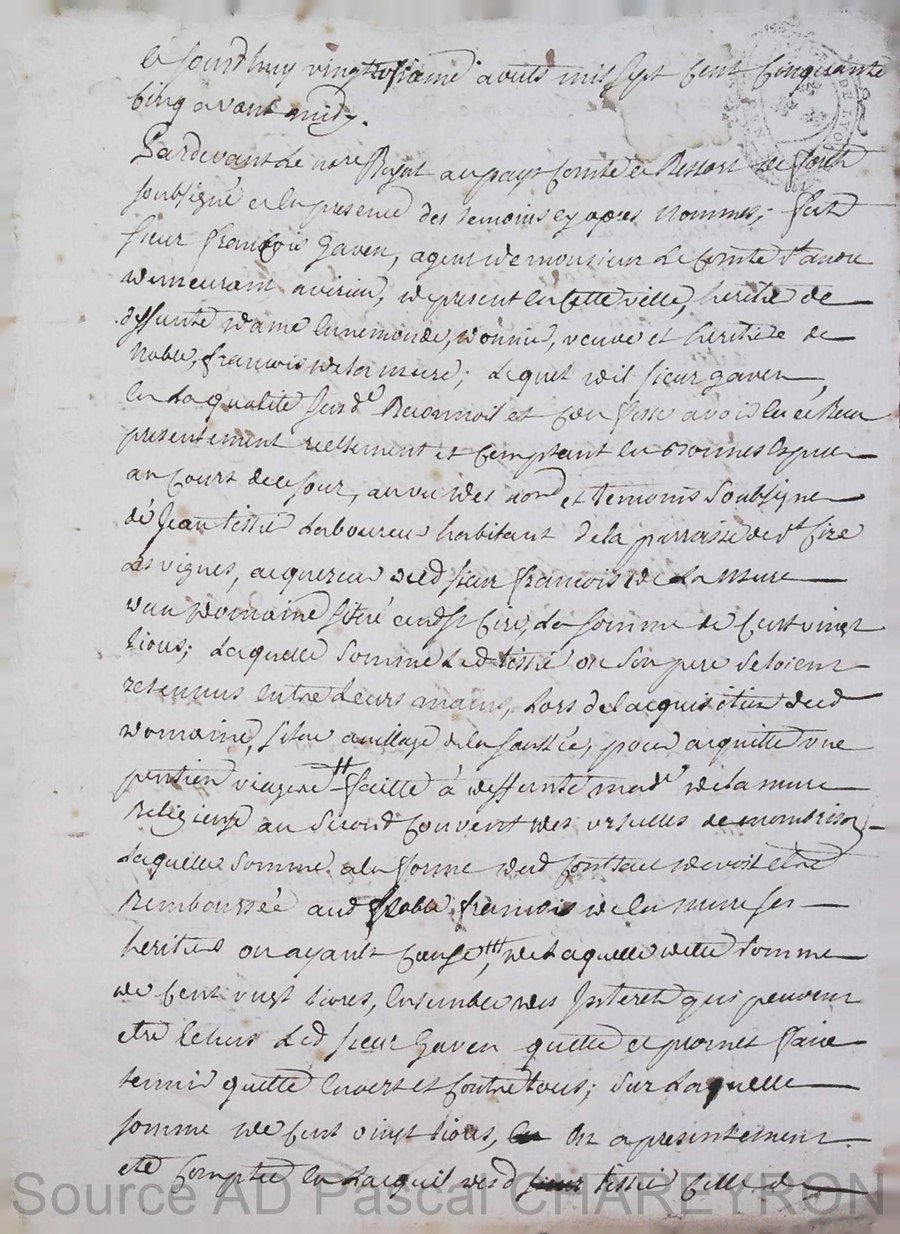 ce Jourdhuy vingt avril mil sept Cent Cinquante
Cinq avant midy.
Pardevant Le no.re Royal au pays Comté et Ressort de forest
soubsigné et En presence des temoins cy apres nommes, fut
sieur françois Gaven, agent de monsieur Le Comte
demeurant a virieu, de present En Cette ville, heritié de
deffunte dame Ennemonde, veuve et heritiere de
Noble, francois de la mure; Lequel dit sieur gaven
En La qualité susd.e Reconnoit et Confesse avoir Eu et Receu
presentement reellement et Comptant En Bonnes Especes
au Cours de ce Jour, au vu des not et temoins Soubsignes
de Jean tissié Laboureur habitant de la parroisse de st Cire
Les vignes, acquereur dud sieur francois De La Mure
d'un Domaine situé aud st Cire, La somme de Cent vingt
livres; Laquelle somme Led tissié ou son pere setoient
retenus Entre Leurs mains, Lors de lacquisition dud
domaine, situé au village de la, pour acquitter une
pention viagere faitte à deffunte mad.e de la mure
Religieuse au Second Couvent des ursulles de monbrison,
Laquelle Somme a la forme dud Contract devoit etre
Rembourssée aud Noble francois de la mure ses
heritiers ou ayants Cause, de Laquelle ditte Somme
de Cent vingt livres, Ensemble des Interets qui peuvent
etre Echus Led sieur Gaven quitte et promet faire
tenir quitte Envers et Contre tous; Sur Laquelle
somme de Cent vingt livres, Il a presentement
eté Compté En Lacquit dud tissié Celle de
Source AD Pascal CHAREYRON